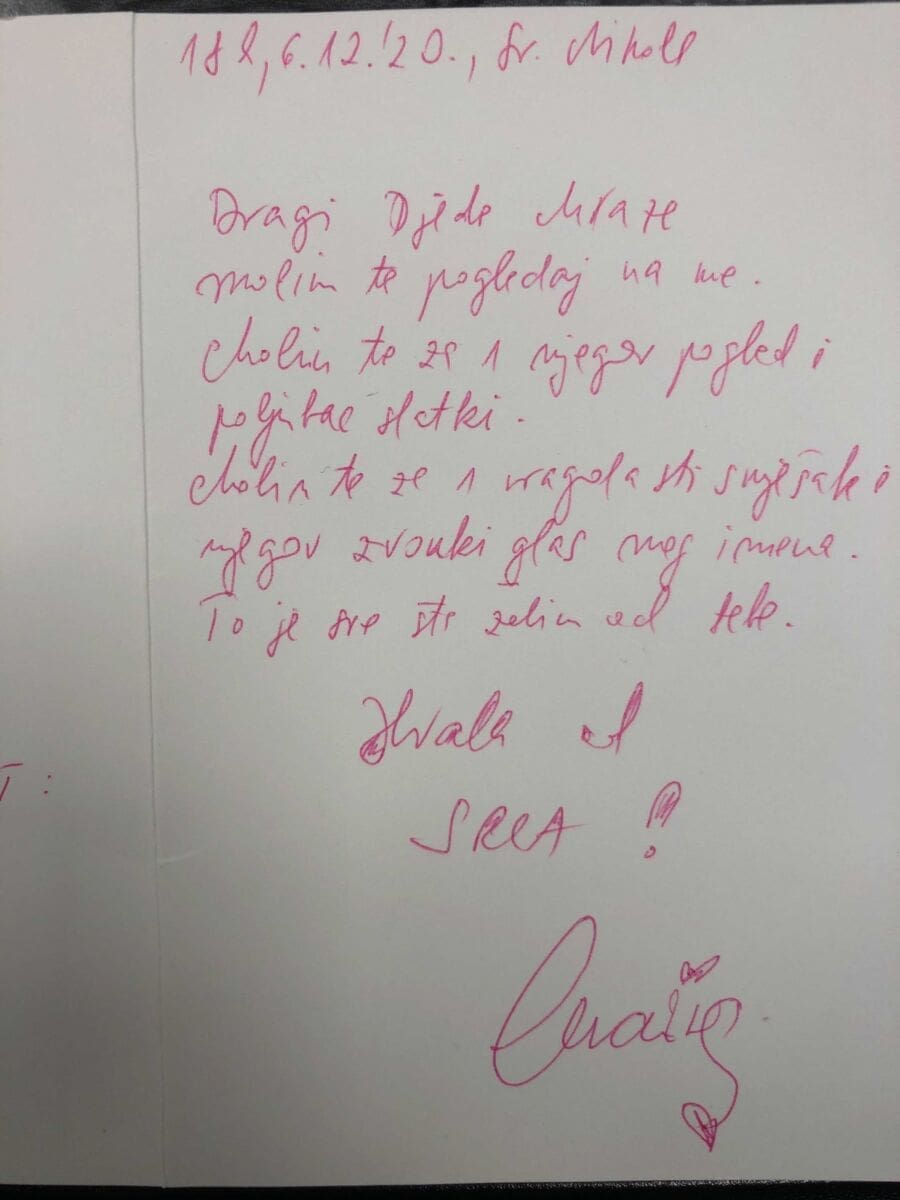 18h, 6.12.'20., Sv. Nikola
Dragi Djede Mraze
molim te pogledaj na me.
Molim te za 1 njegov pogled i
poljubac slatki.
Molim te za 1 vragolasti smješak i
njegov zvonki glas mog imena.
To je sve što želim od tebe.
Hvala od
SRCA !
T: